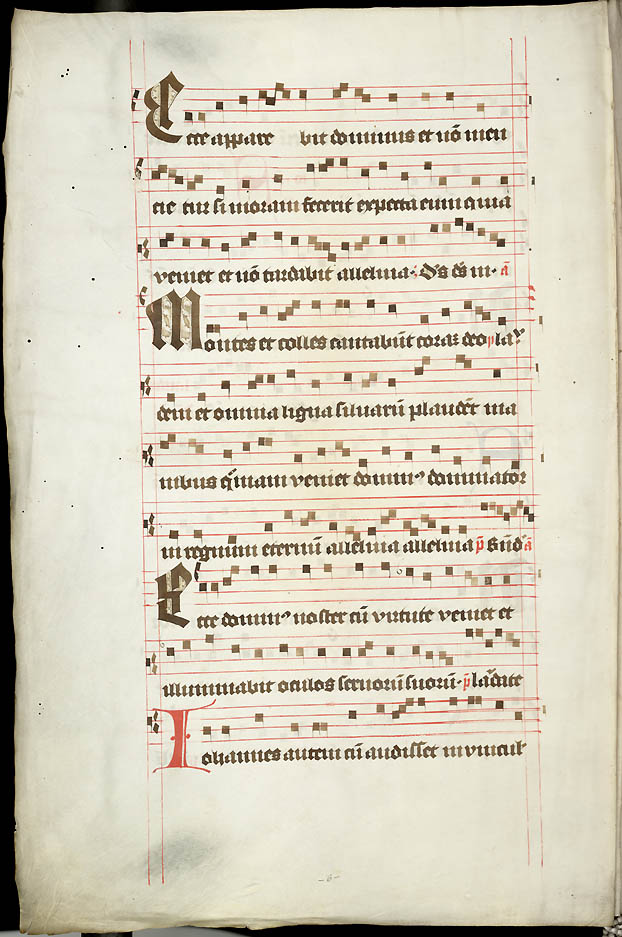 Ecce appare bit dominus et nō men
cie tur si moram fecerit expecta eum quia
veniet et nō tardabit alleluia. Ds ds m. a
Montes et colles cantabūt coraz deo p lau
dem et omnia ligna siluarū plaudēt ma
nibus qm̄iam veniet domin⁹ dominator
in regnum eternū alleluia alleluia p̄ Bn̄d a
Ecce domin⁹ noster cū virtute veniet et
illuminabit oculos seruorū suorū. p̄ laudate
Iohannes autem cū audisset in vincul
-6-